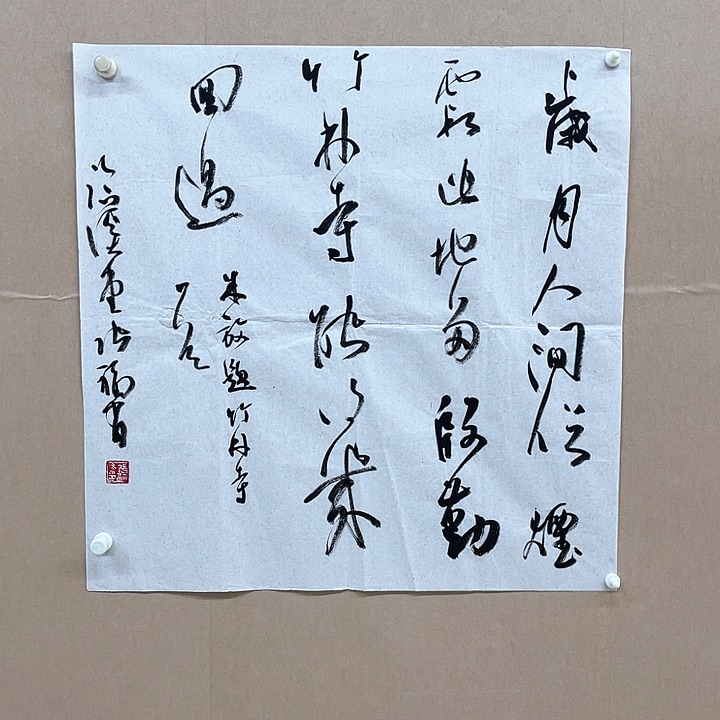 歲月人間促煙
霞此地多殷勤
竹林寺能得幾
回過
朱放題竹林寺